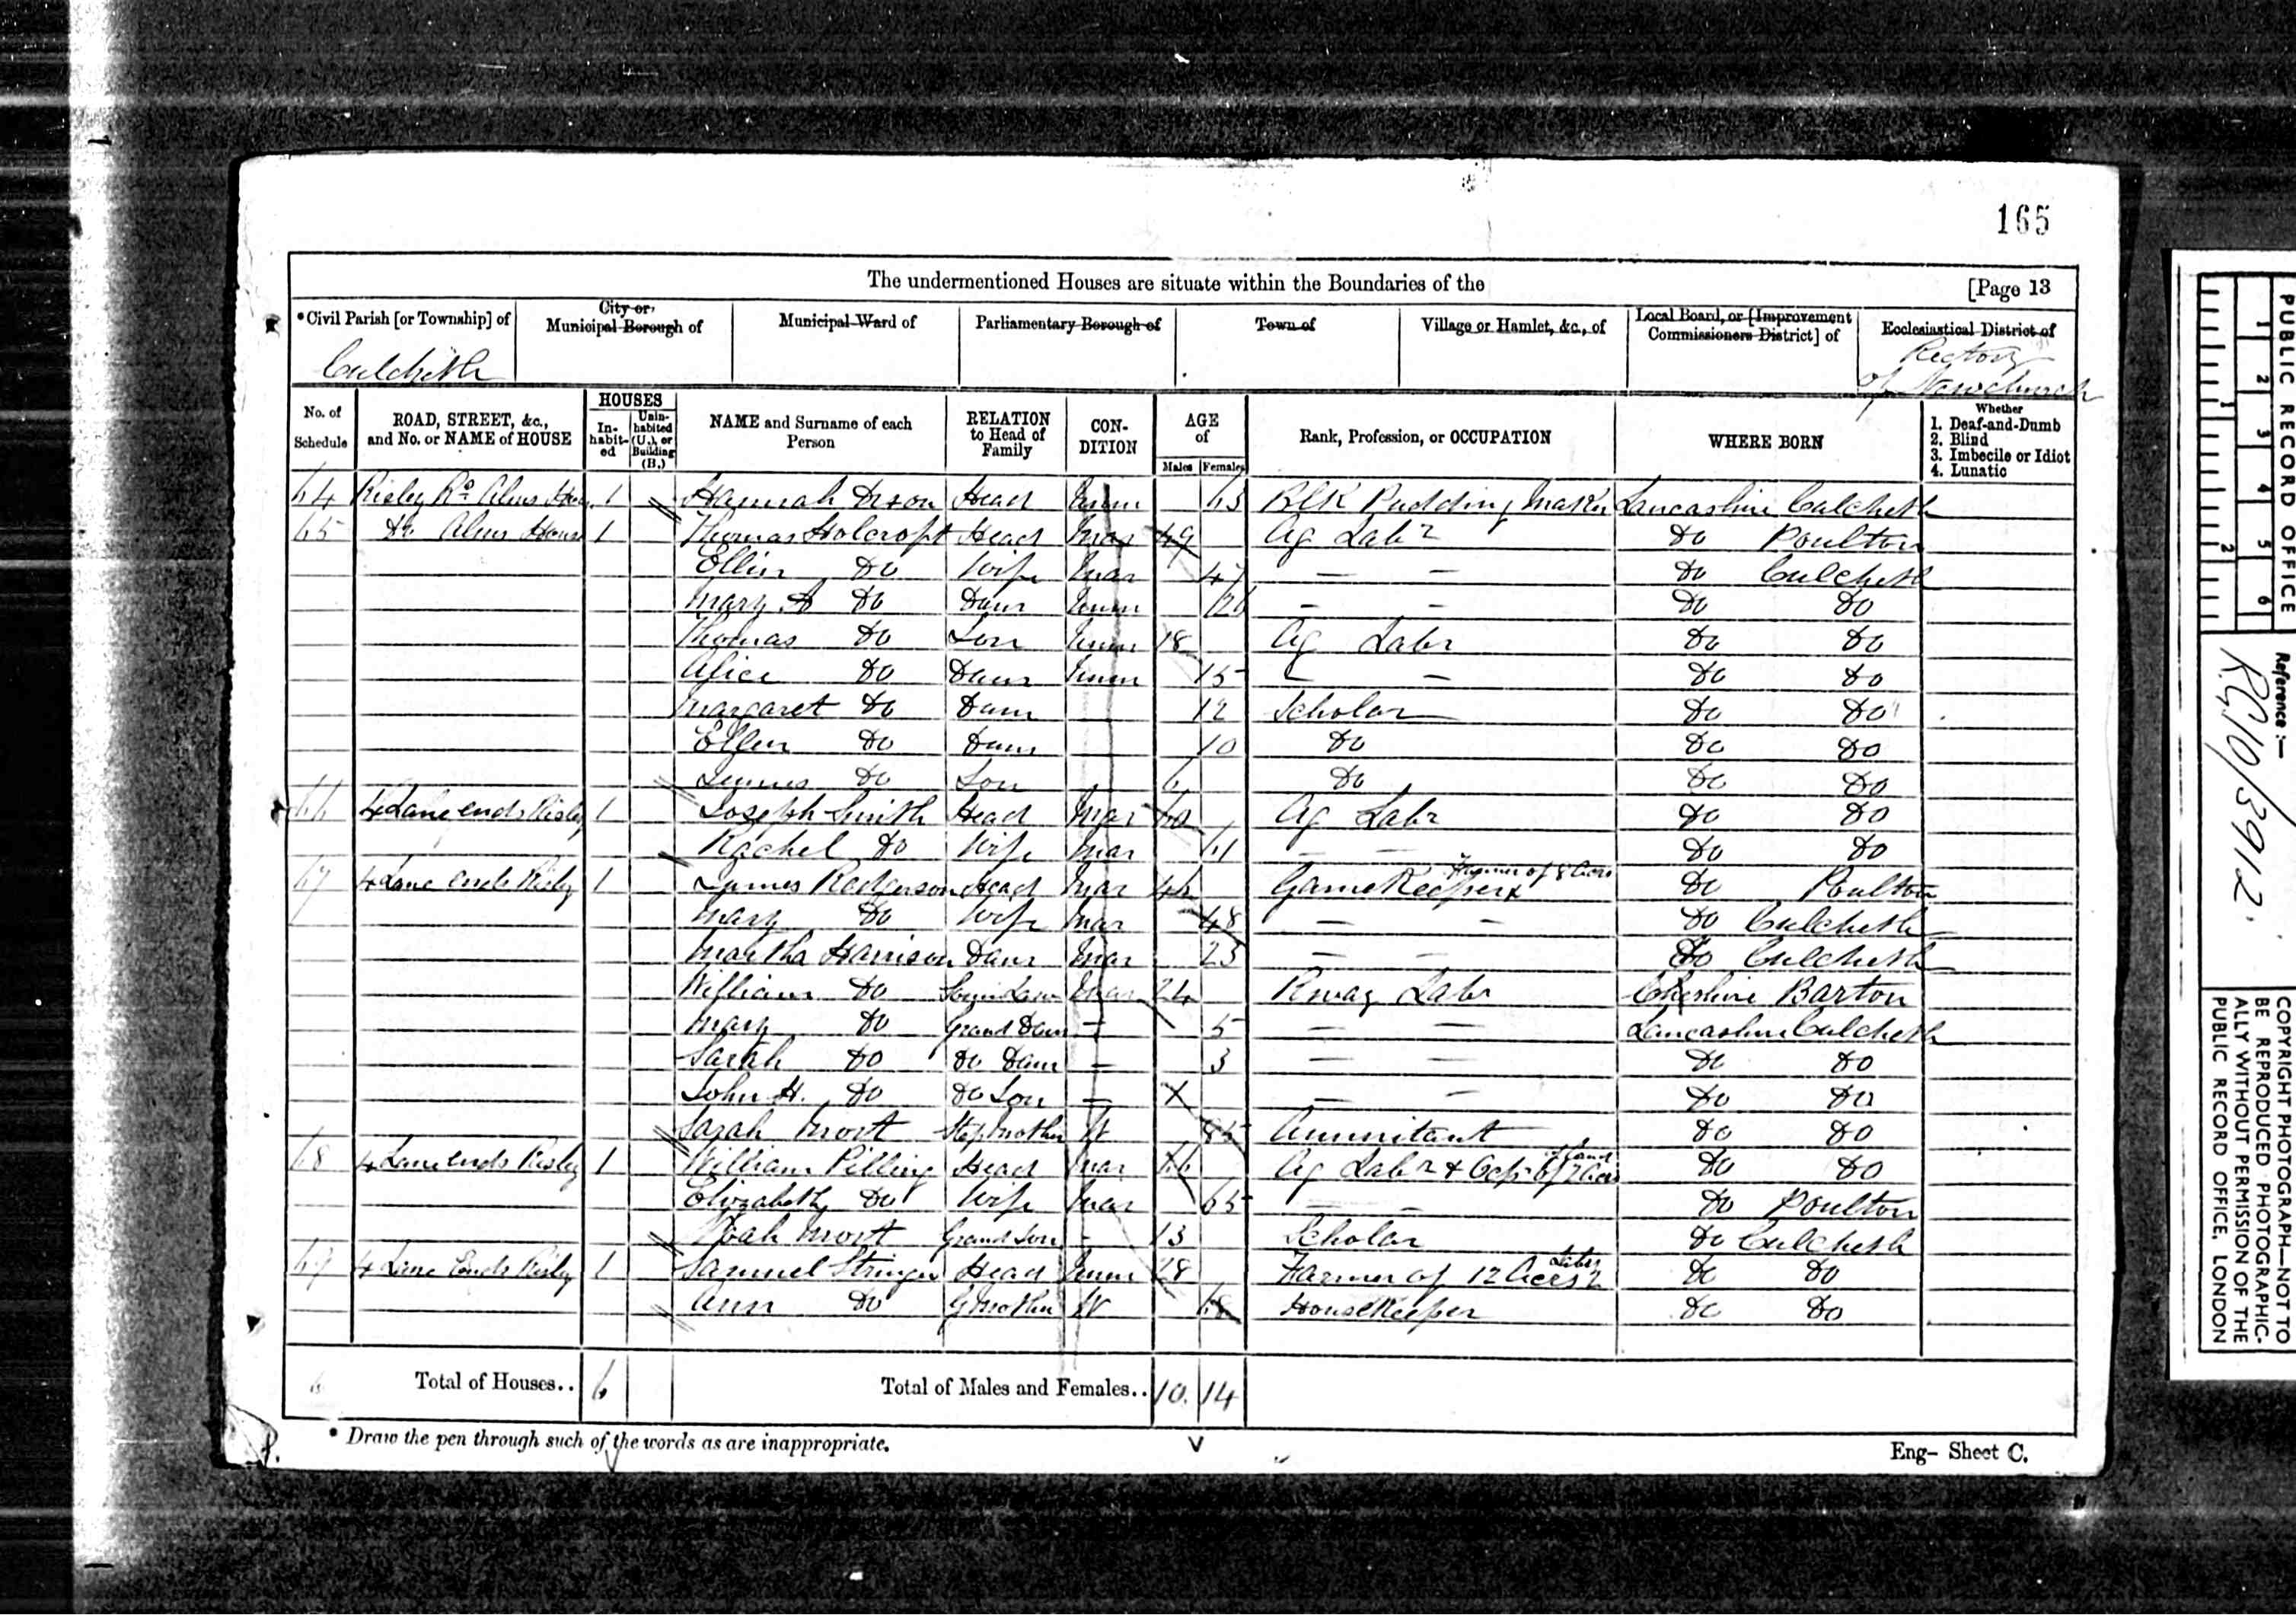 165
The undermentioned Houses are situate within the Boundaries of the [Page 13
*Civil Parish [or Township] of
City or Municipal Borough of
Municipal Ward of
Parliamentary Borough of
Town of
Village or Hamlet, &c., of
Local Board, or [Improvement Commissioners District] of
Ecclesiastical District of
Culcheth
Rectory of Newchurch
No. of Schedule
ROAD, STREET, &c., and No. or NAME of HOUSE
HOUSES
Inhabited
Uninhabited (U.), or Building (B.)
NAME and Surname of each Person
RELATION to Head of Family
CONDITION
AGE of
Males Females
Rank, Profession, or OCCUPATION
WHERE BORN
Whether
1. Deaf-and-Dumb
2. Blind
3. Imbecile or Idiot
4. Lunatic
64 Risley Rd Alms House 1 Hannah Dixon Head Unm 63 Blk Pudding Maker Lancashire Culcheth
65 Do Alms House 1 Thomas Holcroft Head Mar 49 Ag Labr Do Poulton
Ellin Do Wife Mar 47 — — Do Culcheth
Mary A Do Daur Unm 20 — — Do Do
Thomas Do Son Unm 18 Ag Labr Do Do
Alice Do Daur Unm 15 — — Do Do
Margaret Do Daur 12 Scholar Do Do
Ellen Do Daur 10 Do Do Do
James Do Son 6 Do Do Do
66 4 Lane ends Risley 1 Joseph Smith Head Mar 60 Ag Labr Do Do
Rachel Do Wife Mar 61 — — Do Do
67 4 Lane ends Risley 1 James Rodgerson Head Mar 46 Game Keeper & Farmer of 8 Acres Do Poulton
Mary Do Wife Mar 48 — — Do Culcheth
Martha Harrison Daur Mar 23 — — Do Culcheth
William Do Son in Law Mar 24 Rway Labr Cheshire Barton
Mary Do Grand Daur — 5 — — Lancashire Culcheth
Sarah Do Do Daur — 3 — — Do Do
John H. Do Do Son — — — Do Do
Sarah Mort Step Mother W 85 Annuitant Do Do
68 4 Lane ends Risley 1 William Pilling Head Mar 66 Ag Labr & Ocp of 2 Acres Land Do Do
Elizabeth Do Wife Mar 65 — — Do Poulton
Noah Mort Grand Son - 13 Scholar Do Culcheth
69 4 Lane Ends Risley 1 Samuel Stringer Head Unm 28 Farmer of 12 Acres 2 Labrs Do Do
Ann Do G Mother W 68 House Keeper Do Do
6 Total of Houses.. 6 Total of Males and Females.. 10. 14
* Draw the pen through such of the words as are inappropriate.
Eng- Sheet C.
PUBLIC RECORD OFFICE
1 2 3 4 5 6
1 2
Reference :—
R.G. 10/3912
COPYRIGHT PHOTOGRAPH—NOT TO
BE REPRODUCED PHOTOGRAPHIC-
ALLY WITHOUT PERMISSION OF THE
PUBLIC RECORD OFFICE, LONDON